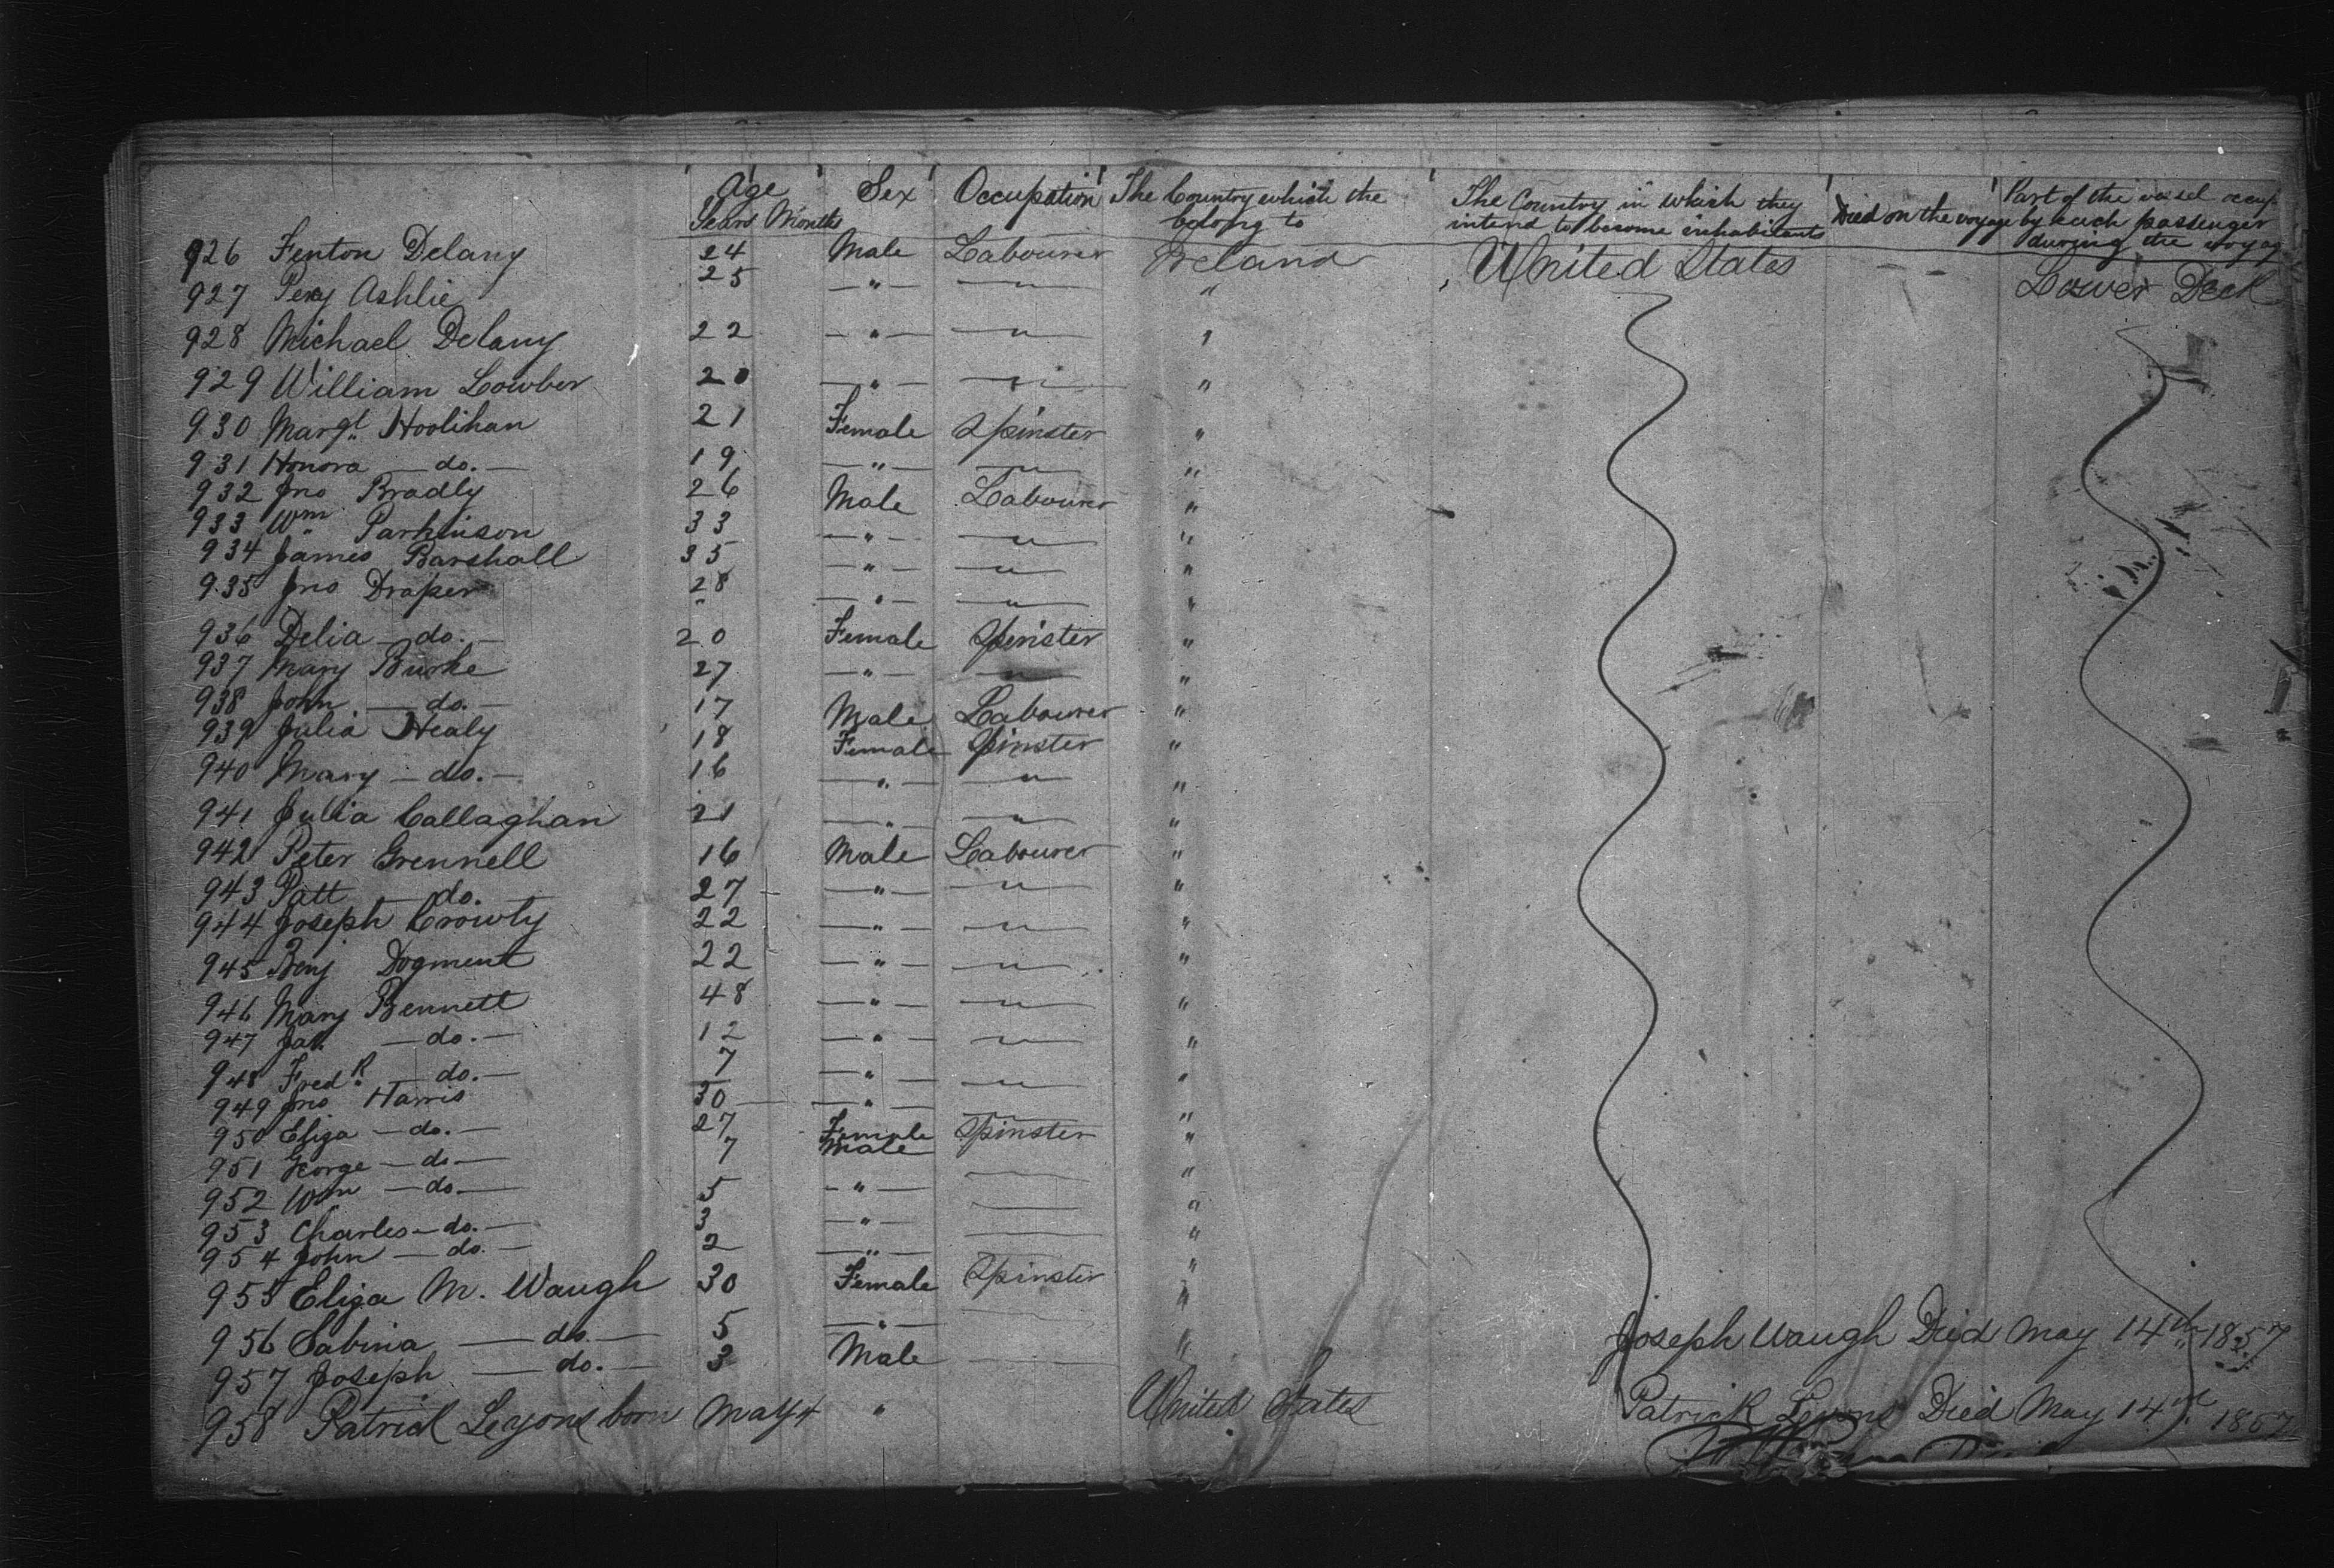 Age Sex Occupation The Country which the The Country in which they Died on the voyage Part of the vessel occup.
Years Months belong to intend to become inhabitants by each passenger
during the voyag
926 Fenton Delany 24 Male Labourer Ireland United States — — Lower Deck
927 Ashlie 25 — " — — " — "
928 Michael Delany 22 — " — — " — "
929 William Lowber 20 — " — — " — "
930 Margt. Hoolihan 21 Female Spinster "
931 Honora — do. — 19 — " — — " — "
932 Jno Bradly 26 Male Labourer "
933 Wm. Parkinson 33 — " — — " — "
934 James Barshall 35 — " — — " — "
935 Jno Draper 28 — " — — " — "
936 Delia — do. — 20 Female Spinster "
937 Mary Burke 27 — " — — " — "
938 John — do. — 17 Male Labourer "
939 Julia Healy 18 Female Spinster "
940 Mary — do. — 16 — " — — " — "
941 Julia Callaghan 21 — " — — " — "
942 Peter Grennell 16 Male Labourer "
943 Patt do. 27 — " — — " — "
944 Joseph Crowly 22 — " — — " — "
945 Benj Dogment 22 — " — — " — "
946 Mary Bennett 48 — " — — " — "
947 Jas. — do. — 12 — " — — " — "
948 Fredk. — do. — 7 — " — — " — "
949 Jno Harris 30 — " — — " — "
950 Eliza — do. — 27 Female Spinster "
951 George — do — 7 Male — "
952 Wm — do — 5 — " — — "
953 Charles — do. — 3 — " — — "
954 John — do. — 2 — " — — "
955 Eliza M. Waugh 30 Female Spinster "
956 Sabina — do. — 5 — " — — " Joseph Waugh Died May 14th 1857
957 Joseph — do. — 3 Male — "
958 Patrick Leyons born May 4 " United States Patrick Leyons Died May 14th. 1857